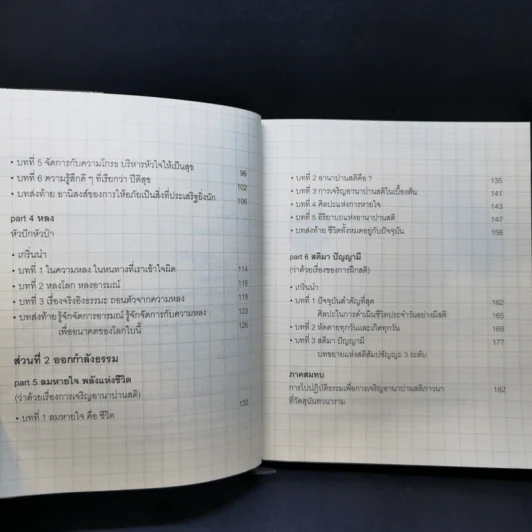 • บทที่ 5 จัดการกับความโกรธ บริหารหัวใจให้เป็นสุข 96
• บทที่ 6 ความรู้สึกดี ๆ ที่เรียกว่า ปีติสุข 102
• บทส่งท้าย อานิสงส์ของการให้อภัยเป็นสิ่งที่ประเสริฐยิ่งนัก 106
part 4 หลง
หัวปักหัวป่ำ
• เกริ่นนำ
• บทที่ 1 ในความหลง ในหนทางที่เราเข้าใจผิด 114
• บทที่ 2 หลงโลก หลงอารมณ์ 116
• บทที่ 3 เรื่องจริงอิงธรรมะ ถอนตัวจากความหลง 119
• บทส่งท้าย รู้จักจัดการอารมณ์ รู้จักจัดการกับความหลง 123
เพื่ออนาคตของโลกใบนี้ 126
ส่วนที่ 2 ออกกำลังธรรม
part 5 ลมหายใจ พลังแห่งชีวิต
(ว่าด้วยเรื่องการเจริญอานาปานสติ)
• บทที่ 1 ลมหายใจ คือ ชีวิต 132
• บทที่ 2 อานาปานสติคือ ? 135
• บทที่ 3 การเจริญอานาปานสติในเบื้องต้น 141
• บทที่ 4 ศิลปะแห่งการหายใจ 143
• บทที่ 5 อิริยาบถแห่งอานาปานสติ 147
• บทส่งท้าย ชีวิตทั้งหมดอยู่กับปัจจุบัน 158
part 6 สติมา ปัญญามี
(ว่าด้วยเรื่องของการฝึกสติ)
• เกริ่นนำ
• บทที่ 1 ปัจจุบันสำคัญที่สุด 162
ศิลปะในการดำเนินชีวิตประจำวันอย่างมีสติ 165
• บทที่ 2 หัดตายทุกวันและเกิดทุกวัน 169
• บทที่ 3 สติมา ปัญญามี 177
บทขยายแห่งสติสัมปชัญญะ 3 ระดับ
ภาคสมทบ
การไปปฏิบัติธรรมเพื่อการเจริญอานาปานสติภาวนา 182
ที่วัดสุนันทวนาราม